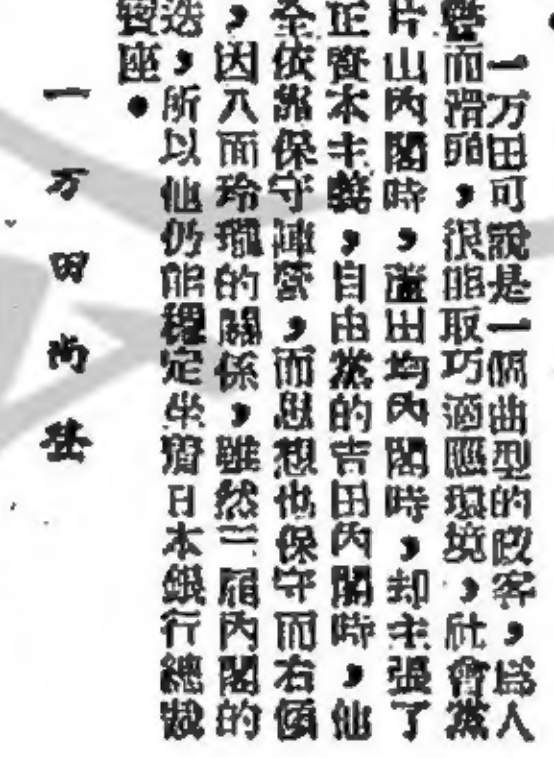 一万田可說是一個曲型的政客，爲人
而滑頭，很能取巧適應環境，社會黨
片山內閣時，蘆田均內閣時，却主張了
正資本主義，自由黨的吉田內閣時，他
全依靠保守陣營，而思想也保守而右傾
，因八面玲瓏的關係，雖然三屆內閣的
迭，所以他仍能穩定坐齊日本銀行總裁
寶座。
一万田尚登